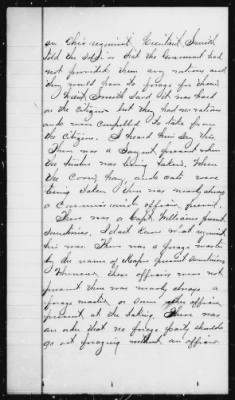 in this regiment. Lieutenant Smith
told the Soldiers that the Government had
not provided them any rations and
they would have to forage for them.
Lieut. Smith said it was hard
on the Citizens but they had no rations
and were compelled to take from
the Citizens. I heard him say this.
There was a Sargent present when
the timber was being taken. When
the Corn, hay, and oats were
being taken there was nearly always
a commissioned officer present.
There was a Capt. Williams present
sometimes. I dont know what regiment
he was. There was a forage master
by the name of present sometimes
Whenever these officers were not
present there was nearly always a
forage master or some other officer
present at the taking. There was
an order that no forage party should
go out foraging without an officer